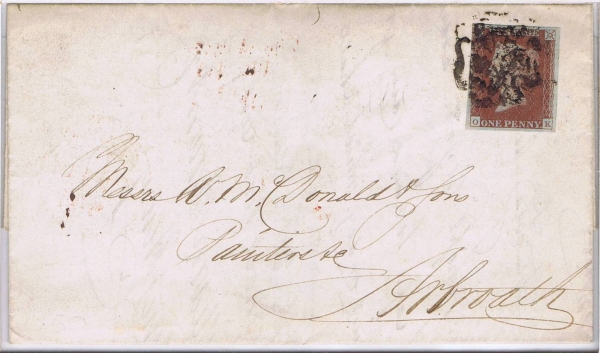 ONE PENNY
O K
Messrs W. McDonald & Sons
Painters &c
Arbroath